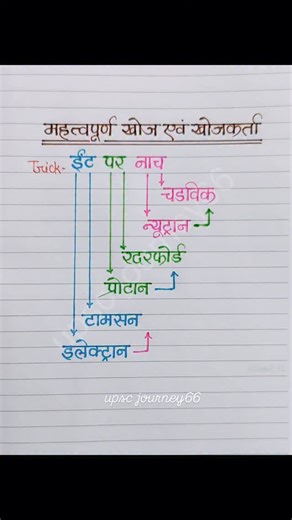 महत्वपूर्ण खोज एवं खोजकर्ता
Trick- ईंट पर नाच
चडविक
न्यूट्रान
रदरफोर्ड
प्रोटान
टामसन
इलेक्ट्रान
upsc journey66